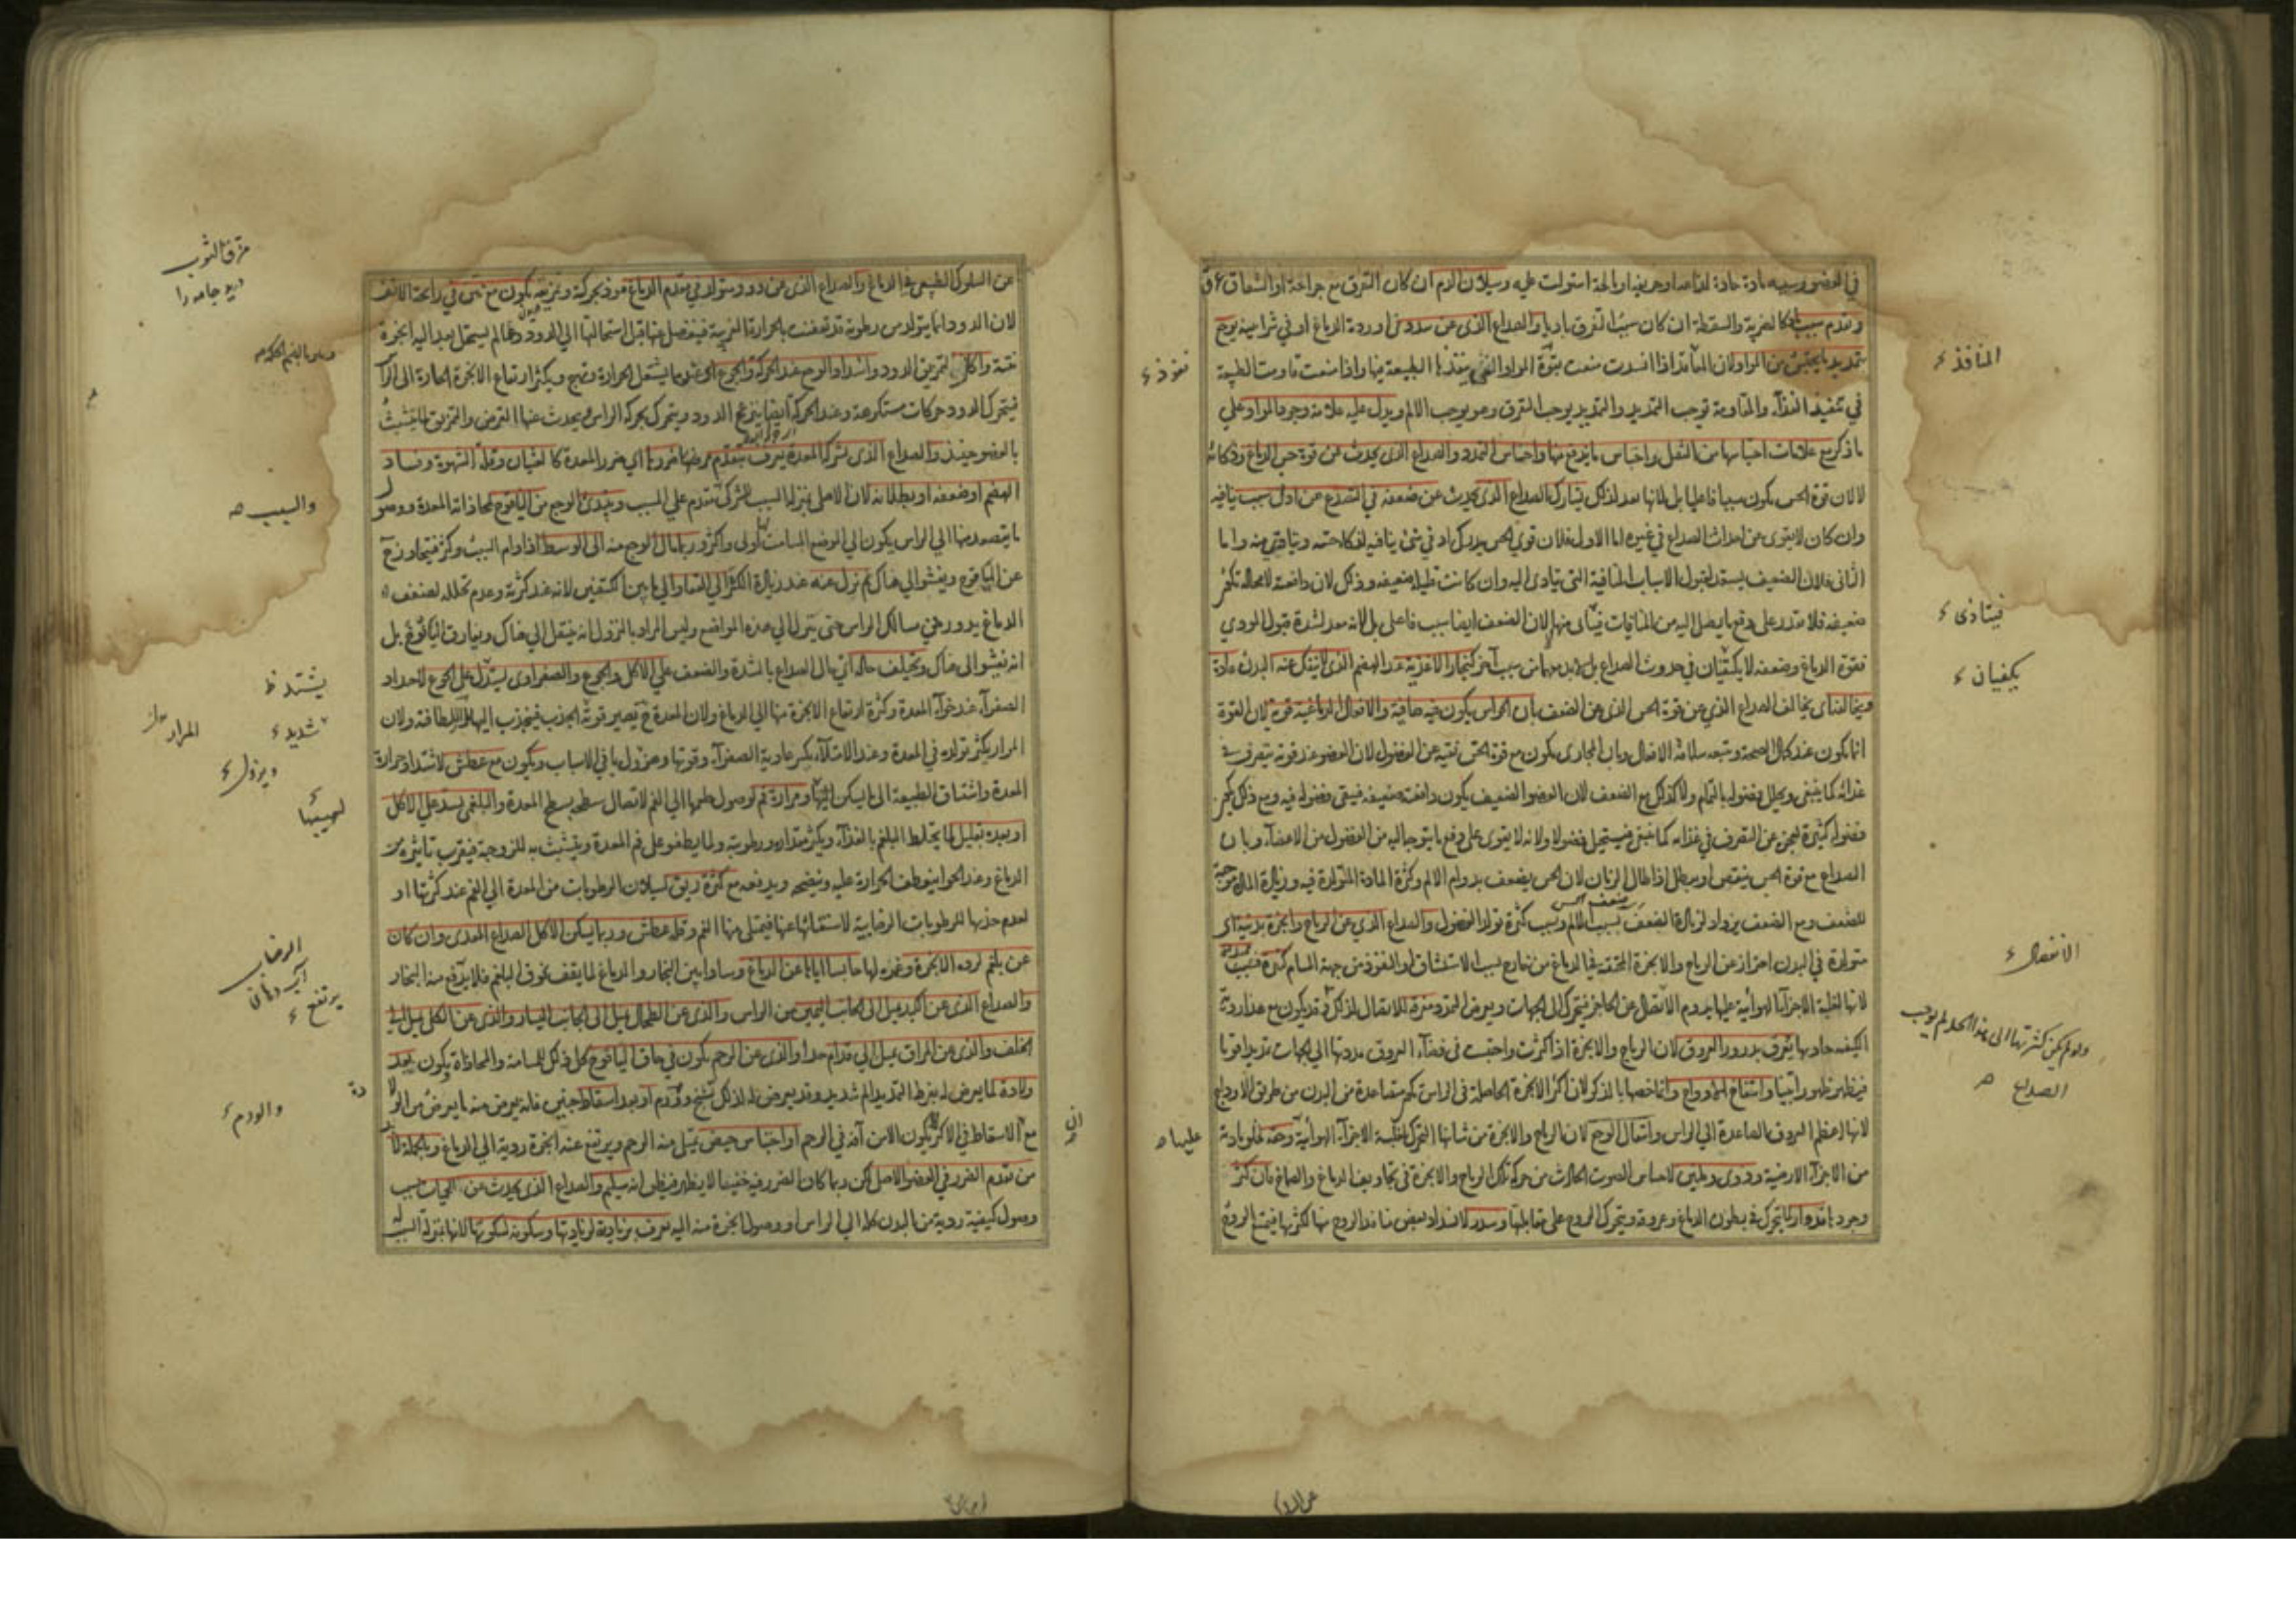 في العضو وسببه مادة حادة لذاعة او حريفة او مالحة استولت عليه وسيلان الدم ان كان التفرق مع جراحة او انشقاق عرق
وتقدم سبب باد كالضربة والسقطة ان كان سببا لتفرق باديا والصداع الذي عن سدد في اوردة الدماغ او في شرايينه يوجع
بتمديد ما يحتبس من المواد لان المنافذ اذا انسدت منعت بقوة المواد التي تنفذها الطبيعة فيها واذا منعت قاومت الطبيعة
في تنفيذ الغذاء والمقاومة توجب التمديد والتمديد يوجب التفرق وهو يوجب الالم ويدل عليه علامة وجود المواد على
ما ذكر مع علامات احتباسها من الثقل واحتباس ما يندفع منها واحساس التمدد والصداع الذي يحدث عن قوة حس الدماغ وذكائه
لا لان قوة الحس يكون سببا فاعليا بل لانها معد لذلك يشارك الصداع الذي يحدث عن ضعفه في التصدع عن ادنى سبب ينافيه
وان كان لا يقوى عن احداث الصداع في غيره اما الاول فلان قوي الحس يدرك ادنى شيء ينافيه لذكاء حسه ويتأذى منه واما
الثاني فلان الضعيف يستعد لقبول الاسباب المنافية التي تتأدى اليه وان كانت قليلة ضعيفة وذلك لان دافعته لا محالة تكون
ضعيفة فلا تقدر على دفع ما يصل اليه من المنافيات فيتأذى منها لا لان الضعف ايضا سبب فاعلي بل لانه معد لشدة قبول الموذي
فقوة الدماغ وضعفه لا يكفيان في حدوث الصداع بل لا بد معهما من سبب آخر كبخار الاغذية عند الهضم الذي لا ينفك عنه البدن عادة
ويخالف اي يخالف الصداع الذي عن قوة الحس الذي عن الضعف بان الحواس يكون فيه صافية والافعال الدماغية قوية لان القوة
انما يكون عند كمال الصحة ويتبعه سلامة الافعال وبان المجاري يكون مع قوة الحس نقية عن الفضول لان العضو عند قوته يتصرف في
غذائه كما ينبغي ويحلل فضوله بالتمام ولا كذلك مع الضعف لان العضو الضعيف يكون دافعته ضعيفة فيبقى فضوله فيه ومع ذلك يكون
فضوله كثيرة لعجزه عن التصرف في غذائه كما ينبغي فيستحيل فضولا ولانه لا يقوى على دفع ما يتوجه اليه من الفضول من الاعضاء وبان
الصداع مع قوة الحس ينقص او يبطل اذا طال الزمان لان الحس يضعف بدوام الالم وكثرة المادة المتولدة فيه وزيادة المادة موجبة
للضعف ومع الضعف يزداد لزيادة الضعف بسبب الالم وبسبب كثرة تولد الفضول والصداع الذي عن الرياح وابخرة بدنية اي
متولدة في البدن احتراز عن الرياح والابخرة المحتقنة في الدماغ من خارج بسبب الاستنشاق او النفوذ من جهة المسام
لانها لغلبة الاجزاء الهوائية عليها يدوم الانتقال عن الحاجز فيتحرك الى الجهات ويعرض التمدد منه للانتقال لذلك وقد يكون مع هذا رديئة
الكيفية حادة يعرف بدرور العروق لان الرياح والابخرة اذا كثرت واحتبست في فضاء العروق مددتها الى الجهات تمديدا قويا
فيظهر ظهورا بينا وانتفاخ الاوداج وانما خصها بالذكر لان اكثر الابخرة الحاصلة في الراس يكون متصاعدة من البدن من طريق الاوداج
لانها اعظم العروق الصاعدة الى الراس وانتقال الوجع لان الرياح والابخرة من شانها التحرك لغلبة الاجزاء الهوائية وخفة لخلو مادته
من الاجزاء الارضية ودوي وطنين لاحساس الصوت الحادث من حركة تلك الرياح والابخرة في تجاويف الدماغ والصماخ فان كثر
وجود ما تدوار لما يتحرك في بطون الدماغ وعروقه ويتحرك الروح على مقابلتها وسدر لانسداد بعض منافذ الروح منها لكثرتها فيمنع الروح
المنافذ
نفوذ
فيتاذى
يكفيان
ضعف الحس
الانتقال
ولو لم يكن كثرتها الى هذا الحد لم يوجب
الصداع
عليها
عن السلوك
عن السلوك الطبيعي في الدماغ والصداع الذي عن دود يتولد في مقدم الدماغ فهو يوذي بحركته وتمزيقه يكون مع نتن في رائحة الانف
لان الدود انما يتولد من رطوبة قد تعفنت بالحرارة الغريبة فينفصل عنها قبل استحالتها الى الدود وعما لم يستحل بعد اليه ابخرة
نتنة واكال لتمزيق الدود واشتداد الوجع عند الحركة والجوع اي عند ما يشتعل الحرارة وتهيج ويكثر ارتفاع الابخرة الحارة الى الراس
فيتحرك الدود حركات مستكرهة وعند الحركة ايضا ينزعج الدود ويتحرك بحركة الراس ويحدث عنها القرض والتمزيق لما يتشبث
بالعضو حينئذ والصداع الذي بشركة المعدة يعرف بتقدم مرضها او ضررها اي ضرر المعدة كالغثيان وقلة الشهوة وفساد
الهضم او ضعفه او بطلانه لان الاصل بمنزلة السبب للشركي فتقدم على المسبب ويبتدئ الوجع من اليافوخ لمحاذاته المعدة ووصول
ما يتصعد منها الى الراس يكون الى الموضع المسامت اولى واكثر وربما مال الوجع منه الى الوسط اذا دام السبب وكثر فيتجاوز ح
عن اليافوخ ويفشو الى هناك ثم نزل عنه عند زيادة الكثرة الى القفا والى ما بين الكتفين لانه عند كثرته وعدم تحلله لضعف
الدماغ يدور في مسالك الراس حتى ينزل الى هذه المواضع وليس المراد بالنزول انه ينتقل الى هناك ويفارق اليافوخ بل
انه يفشو الى هناك ويختلف حاله اي حال الصداع بالشدة والضعف على الاكل والجوع والصفراوي يشتد على الجوع لاحتداد
الصفراء عند خواء المعدة وكثرة ارتفاع الابخرة منها الى الدماغ ولان المعدة ح يصير قوية الجذب فينجذب اليها المرار للطافته ولان
المرار يكثر تولده في المعدة وعند الامتلاء يكسر عادية الصفراء وقوتها وهزول باقي الاسباب ويكون مع عطش لاشتداد حرارة
المعدة واشتياق الطبيعة الى ما يسكن لهيبها ومرارة فم لوصول طعمها الى الفم لاتصال سطحه بسطح المعدة والبلغمي يشتد على الاكل
او بعده بقليل لما يختلط البلغم بالغذاء ويكثر مقداره ورطوبته ولما يطفو على فم المعدة ويتشبث به للزوجته فيقرب تاثيره من
الدماغ وعند الخوا ينعطف الحرارة عليه وينضجه ويدفعه مع كثرة ريق لسيلان الرطوبات من المعدة الى الفم عند كثرتها او
لعدم جذبها للرطوبات الرضابية لاستغنائها عنها فيمتلي منها الفم وقلة عطش وربما يسكن الاكل الصداع المعدي وان كان
عن بلغم لردعه الابخرة وغمره لها حابسا اياها عن الدماغ وسادا بين البخار والدماغ لما يقف فوق البلغم فلا يرتفع منه البخار
والصداع الذي عن الكبد يميل الى الجانب اليمين من الراس والذي عن الطحال يميل الى الجانب اليسار والذي عن الكلى يميل الى
الخلف والذي عن المراق يميل الى قدام جدا والذي عن الرحم يكون في حاق اليافوخ كل ذلك للمسامتة والمحاذاة ويكون بعد
ولادة لما يعرض له بفرط التمديد الم شديد وقد يعرض له لذلك تشنج وورم او بعد اسقاط جنين فانه يعرض منه ما يعرض من الولادة
مع ان الاسقاط في الاكثر يكون لآفة في الرحم او احتباس حيض يمتلي منه الرحم ويرتفع عنه ابخرة ردية الى الدماغ وبالجملة لا بد
من تقدم الضرر في العضو الاصل لكن ربما كان الضرر فيه خفيفا لا يظهر فيظن انه سليم والصداع الذي يحدث عن الحميات بسبب
وصول كيفية ردية من البدن كله الى الراس او وصول ابخرة منه اليه يعرف بزيادته لزيادتها وسكونه لسكونها لانها بمنزلة السبب له
مزق الثوب
دريد جامه را
والسبب
يشتد
شديد
المرار
ويزول
لهيبها
الرضاب
آب دهان
يرتفع
والورم
ان